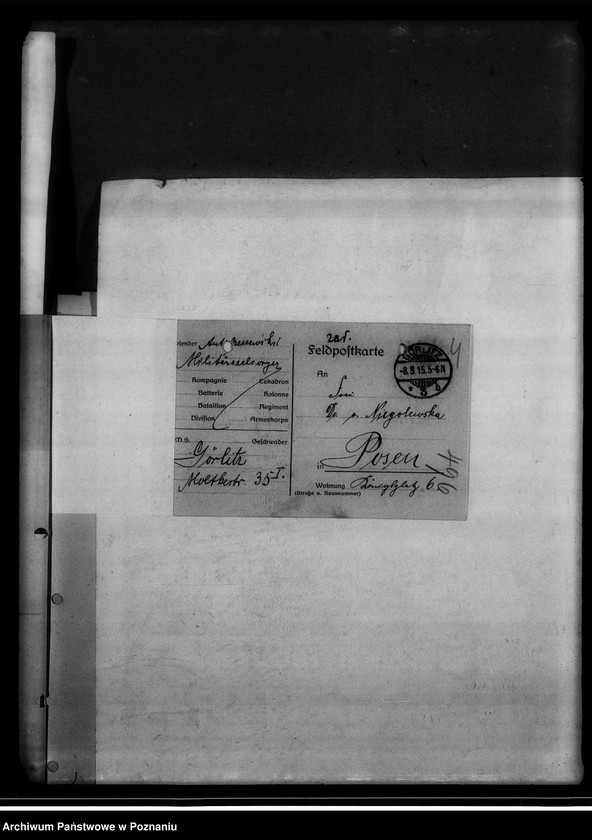 bsender Ant.
Militärseelsorger
Kompagnie Eskadron
Batterie Kolonne
Bataillon Regiment
Division Armeekorps
M.S. Geschwader
Görlitz
Moltkestr. 35 I.
Feldpostkarte
An
Frau
Dr v. Niegolewska
in Posen
Wohnung Königsplatz 6
(Straße u. Hausnummer)
GÖRLITZ
-8.3.15.5-6N
* 3 b
4
964
Archiwum Państwowe w Poznaniu